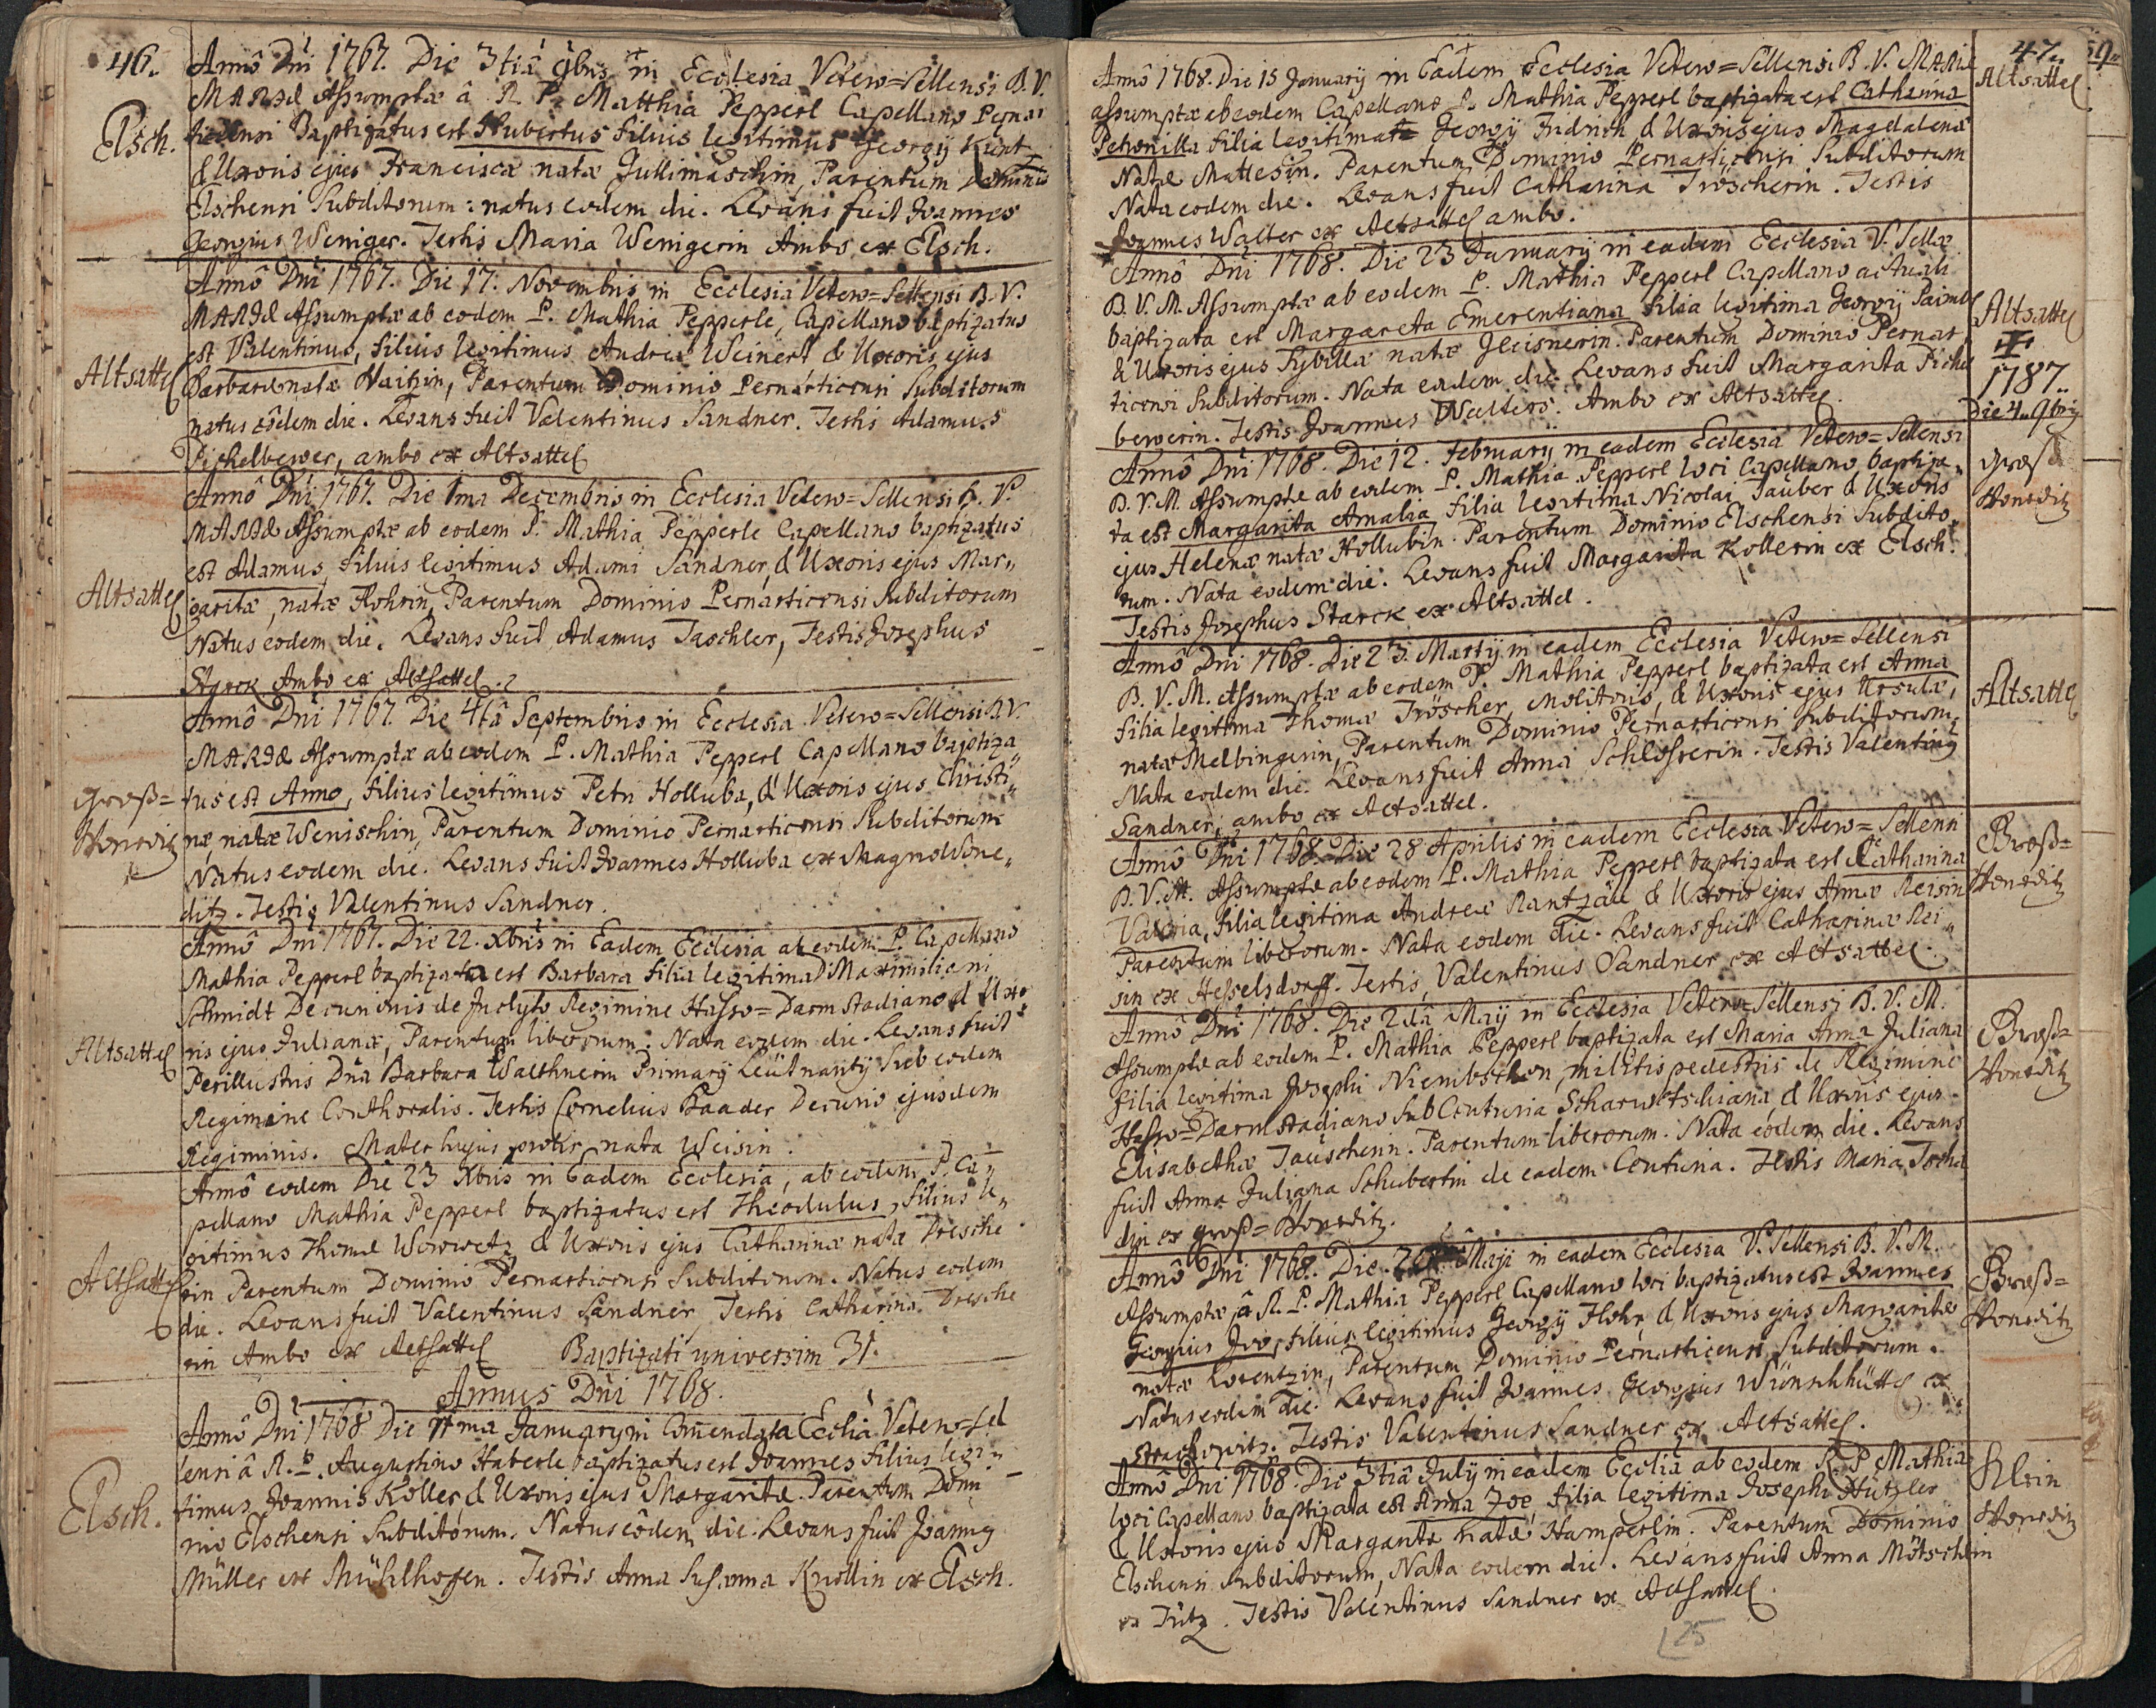 46.
Annô Dni 1767. Die 3tiâ 9bris in Ecclesia Vetero=Sellensi B.V.
MARIÆ Assumptæ â R. P. Matthia Pepperl Capellano Pernar
ticensi Baptizatus est Hubertus filius legitimus Georgij
Elsch.
& Uxoris ejus Franciscæ natæ Parentum Dominio
Elschensi Subditorum: natus eodem die. Levans fuit Joannes
Georgius Weniger. Testis Maria Wenigerin Ambo ex Elsch.
Annô Dni 1767. Die 17. Novembris in Ecclesia Vetero=Sellensi B.V.
MARIÆ Assumptæ ab eodem P. Mathia Pepperle, Capellano baptizatus
est Valentinus, filius legitimus Andreæ Weinert & Uxoris ejus
Altsattel
Barbaræ natæ Parentum Dominio Pernarticensi Subditorum
natus eôdem die. Levans fuit Valentinus Sandner. Testis Adamus
Pichelberger, ambo ex Altsattel
Annô Dni 1767. Die 1ma Decembris in Ecclesia Vetero=Sellensi B.V.
MARIÆ Assumptæ ab eodem P. Mathia Pepperle Capellano baptizatus
est Adamus, filius legitimus Adami Sandner, & Uxoris ejus Mar„
Altsattel
garitæ, natæ Hohrin, Parentum Dominio Pernarticensi Subditorum
Natus eodem die. Levans fuit Adamus Taschler, Testis Josephus
Starck Ambo ex Altsattel.
Annô Dni 1767. Die 4tâ Septembris in Ecclesia Vetero=Sellensi B.V.
MARIÆ Assumptæ ab eodem P. Mathia Pepperl Capellano baptiza
Groß=
tus est Anno, filius legitimus Petri Holluba, & Uxoris ejus Christi„
Wonetitz
næ, natæ Wenischin, Parentum Dominio Pernarticensi Subditorum
Natus eodem die. Levans fuit Joannes Holluba ex Magno Wone„
ditz. Testis Valentinus Sandner.
Annô Dni 1767. Die 22. Xbris in Eadem Ecclesia ab eodem P. Capellano
Mathia Pepperl baptizata est Barbara filia legitima Maximiliani
Schmidt Decurionis de Inclyto Regimine Hasso=Darmstadiano & Uxo„
Altsattel
ris ejus Julianæ, Parentum liberorum. Nata eodem die. Levans fuit
Perillustris Dna Barbara Walthnerin Primarij Leütnantij Sub eodem
Regimine Testis Cornelius Baader Decurio ejusdem
Regiminis. Mater hujus prolis nata Weisin.
Annô eodem Die 23 Xbris in Eadem Ecclesia, ab eodem P. Ca„
pellano Mathia Pepperl baptizatus est Theodulus, filius le„
gitimus Thomæ Worwetz & Uxoris ejus Catharinæ natæ Dresche
Altsattel
rin Parentum Dominio Pernarticensi Subditorum. Natus eodem
die. Levans fuit Valentinus Sandner Testis Catharina Dresche
rin Ambo ex Altsattel Baptizati universim 31.
Annus Dni 1768.
Annô Dni 1768 Die Januarij in Ecclia Vetero=Sel
lensi â R. P. Augustino Haberle baptizatus est Joannes filius legi„
Elsch.
timus Joannis Koller & Uxoris ejus Margaritæ. Parentum Domi
nio Elschensi Subditorum. Natus eôdem die. Levans fuit Joannes
Müller ex Mühlhofen. Testis Anna Susanna Knollin ex Elsch.
47.
Annô 1768. Die 15 Januarij in Eadem Ecclesia Vetero=Sellensi B. V. MARIÆ
Altsattel
assumptæ ab eodem Capellano P. Mathia Pepperl baptizata est Catharina
Petronilla filia legitima Georgij Fridrich & Uxoris ejus Magdalenæ
Natæ Mattesin. Parentum Dominio Pernarticensi Subditorum
Nata eodem die. Levans fuit Catharina Tröscherin. Testis
Joannes Walter ex Altsattel ambo.
Annô Dni 1768. Die 23 Januarij in eadem Ecclesia V. Sellæ
B. V. M. Assumptæ ab eodem P. Mathia Pepperl Capellano actuali
baptizata est Margareta Emerentiana filia legitima Georgij
Altsattel
& Uxoris ejus Sybillæ natæ Gleisnerin. Parentum Dominio Pernar
1787.
ticensi Subditorum. Nata eodem die. Levans fuit Margarita Pichel
Die 4. 9bris
bergerin. Testis Joannes Walters. Ambo ex Altsattel.
Annô Dni 1768. Die 12. February in eadem Ecclesia Vetero=Sellensi
Groß
B. V. M. Assumptæ ab eodem P. Mathia Pepperl loci Capellano baptiza„
Wonetitz
ta est Margarita Amalia filia legitima Nicolai Tauber & Uxoris
ejus Helenæ natæ Hollubin. Parentum Dominio Elschensi Subdito„
rum. Nata eodem die. Levans fuit Margarita Kollerin ex Elsch.
Testis Josephus Starck ex Altsattel.
Annô Dni 1768. Die 23. Martij in eadem Ecclesia Vetero=Sellensi
B. V. M. Assumptæ ab eodem P. Mathia Pepperl baptizata est Anna
Altsattel
filia legitima Thomæ Tröscher, Molitoris, & Uxoris ejus Ursulæ,
natæ Melbingerin, Parentum Dominio Pernarticensi Subditorum
Nata eodem die. Levans fuit Anna Schlosserin. Testis Valentinus
Sandner, ambo ex Altsattel.
Annô Dni 1768. Die 28 Aprilis in eadem Ecclesia Vetero=Sellensi
Groß=
B. V. M. Assumptæ ab eodem P. Mathia Pepperl baptizata est Catharina
Wonetitz
Valeria, filia legitima Andreæ Rantzau & Uxoris ejus Annæ Reisin
Parentum liberorum. Nata eodem die. Levans fuit Catharinæ Rei„
sin ex Hesselsdorff. Testis, Valentinus Sandner ex Altsattel.
Annô Dni 1768. Die 2dâ Maij in Ecclesia Vetero=Sellensi B. V. M.
Groß=
Assumptæ ab eodem P. Mathia Pepperl baptizata est Maria Anna Juliana
Wonetitz
filia legitima Josephi Niembschen, militis pedestris de Regimine
Hasso=Darmstadiano sub Centuria & Uxoris ejus
Elisabethæ Tauscherin. Parentum liberorum. Nata eodem die. Levans
fuit Anna Juliana Schubertin de eadem Centuria. Testis Maria
din ex Groß=Wonetitz.
Annô Dni 1768. Die Maij in eadem Ecclesia V. Sellensi B. V. M.
Groß=
Assumptæ â R. P. Mathia Pepperl Capellano loci baptizatus est Joannes
Wonetitz
Georgius Ivo, filius legitimus Georgij Hohr, & Uxoris ejus Margaritæ
natæ Lorentzin, Parentum Dominio Pernarticensi Subditorum.
Natus eodem die. Levans fuit Joannes Georgius Wünschhüttl ex
Testis Valentinus Sandner ex Altsattel.
Annô Dni 1768. Die 3tiâ Julij in eadem Ecclia ab eodem R. P. Mathia
Klein
loci Capellano baptizata est Anna Zoe, filia legitima Josephi Hützler
Wonetitz
& Uxoris ejus Margaritæ natæ Hamperlin. Parentum Dominio
Elschensi subditorum, Nata eodem die. Levans fuit Anna Mötschlin
ex Testis Valentinus Sandner ex Altsattel.
25